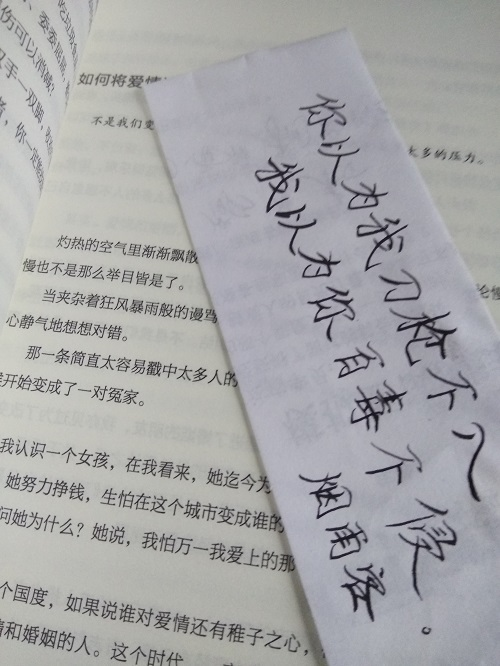 伤可以消磨?
双手一双脚,
者,你一定
如何将爱情
不是我们更
太多的压力。
灼热的空气里渐渐飘散
慢也不是那么举目皆是了。
当夹杂着狂风暴雨般的谩骂
心静气地想想对错。
那一条简直太容易戳中太多人的
开始变成了一对冤家。
我认识一个女孩,在我看来,她迄今为
她努力挣钱,生怕在这个城市变成谁的
问她为什么?她说,我怕万一我爱上的那
个国度,如果说谁对爱情还有稚子之心,
情和婚姻的人。这个时代
你以为我刀枪不入
我以为你百毒不侵。
烟雨客